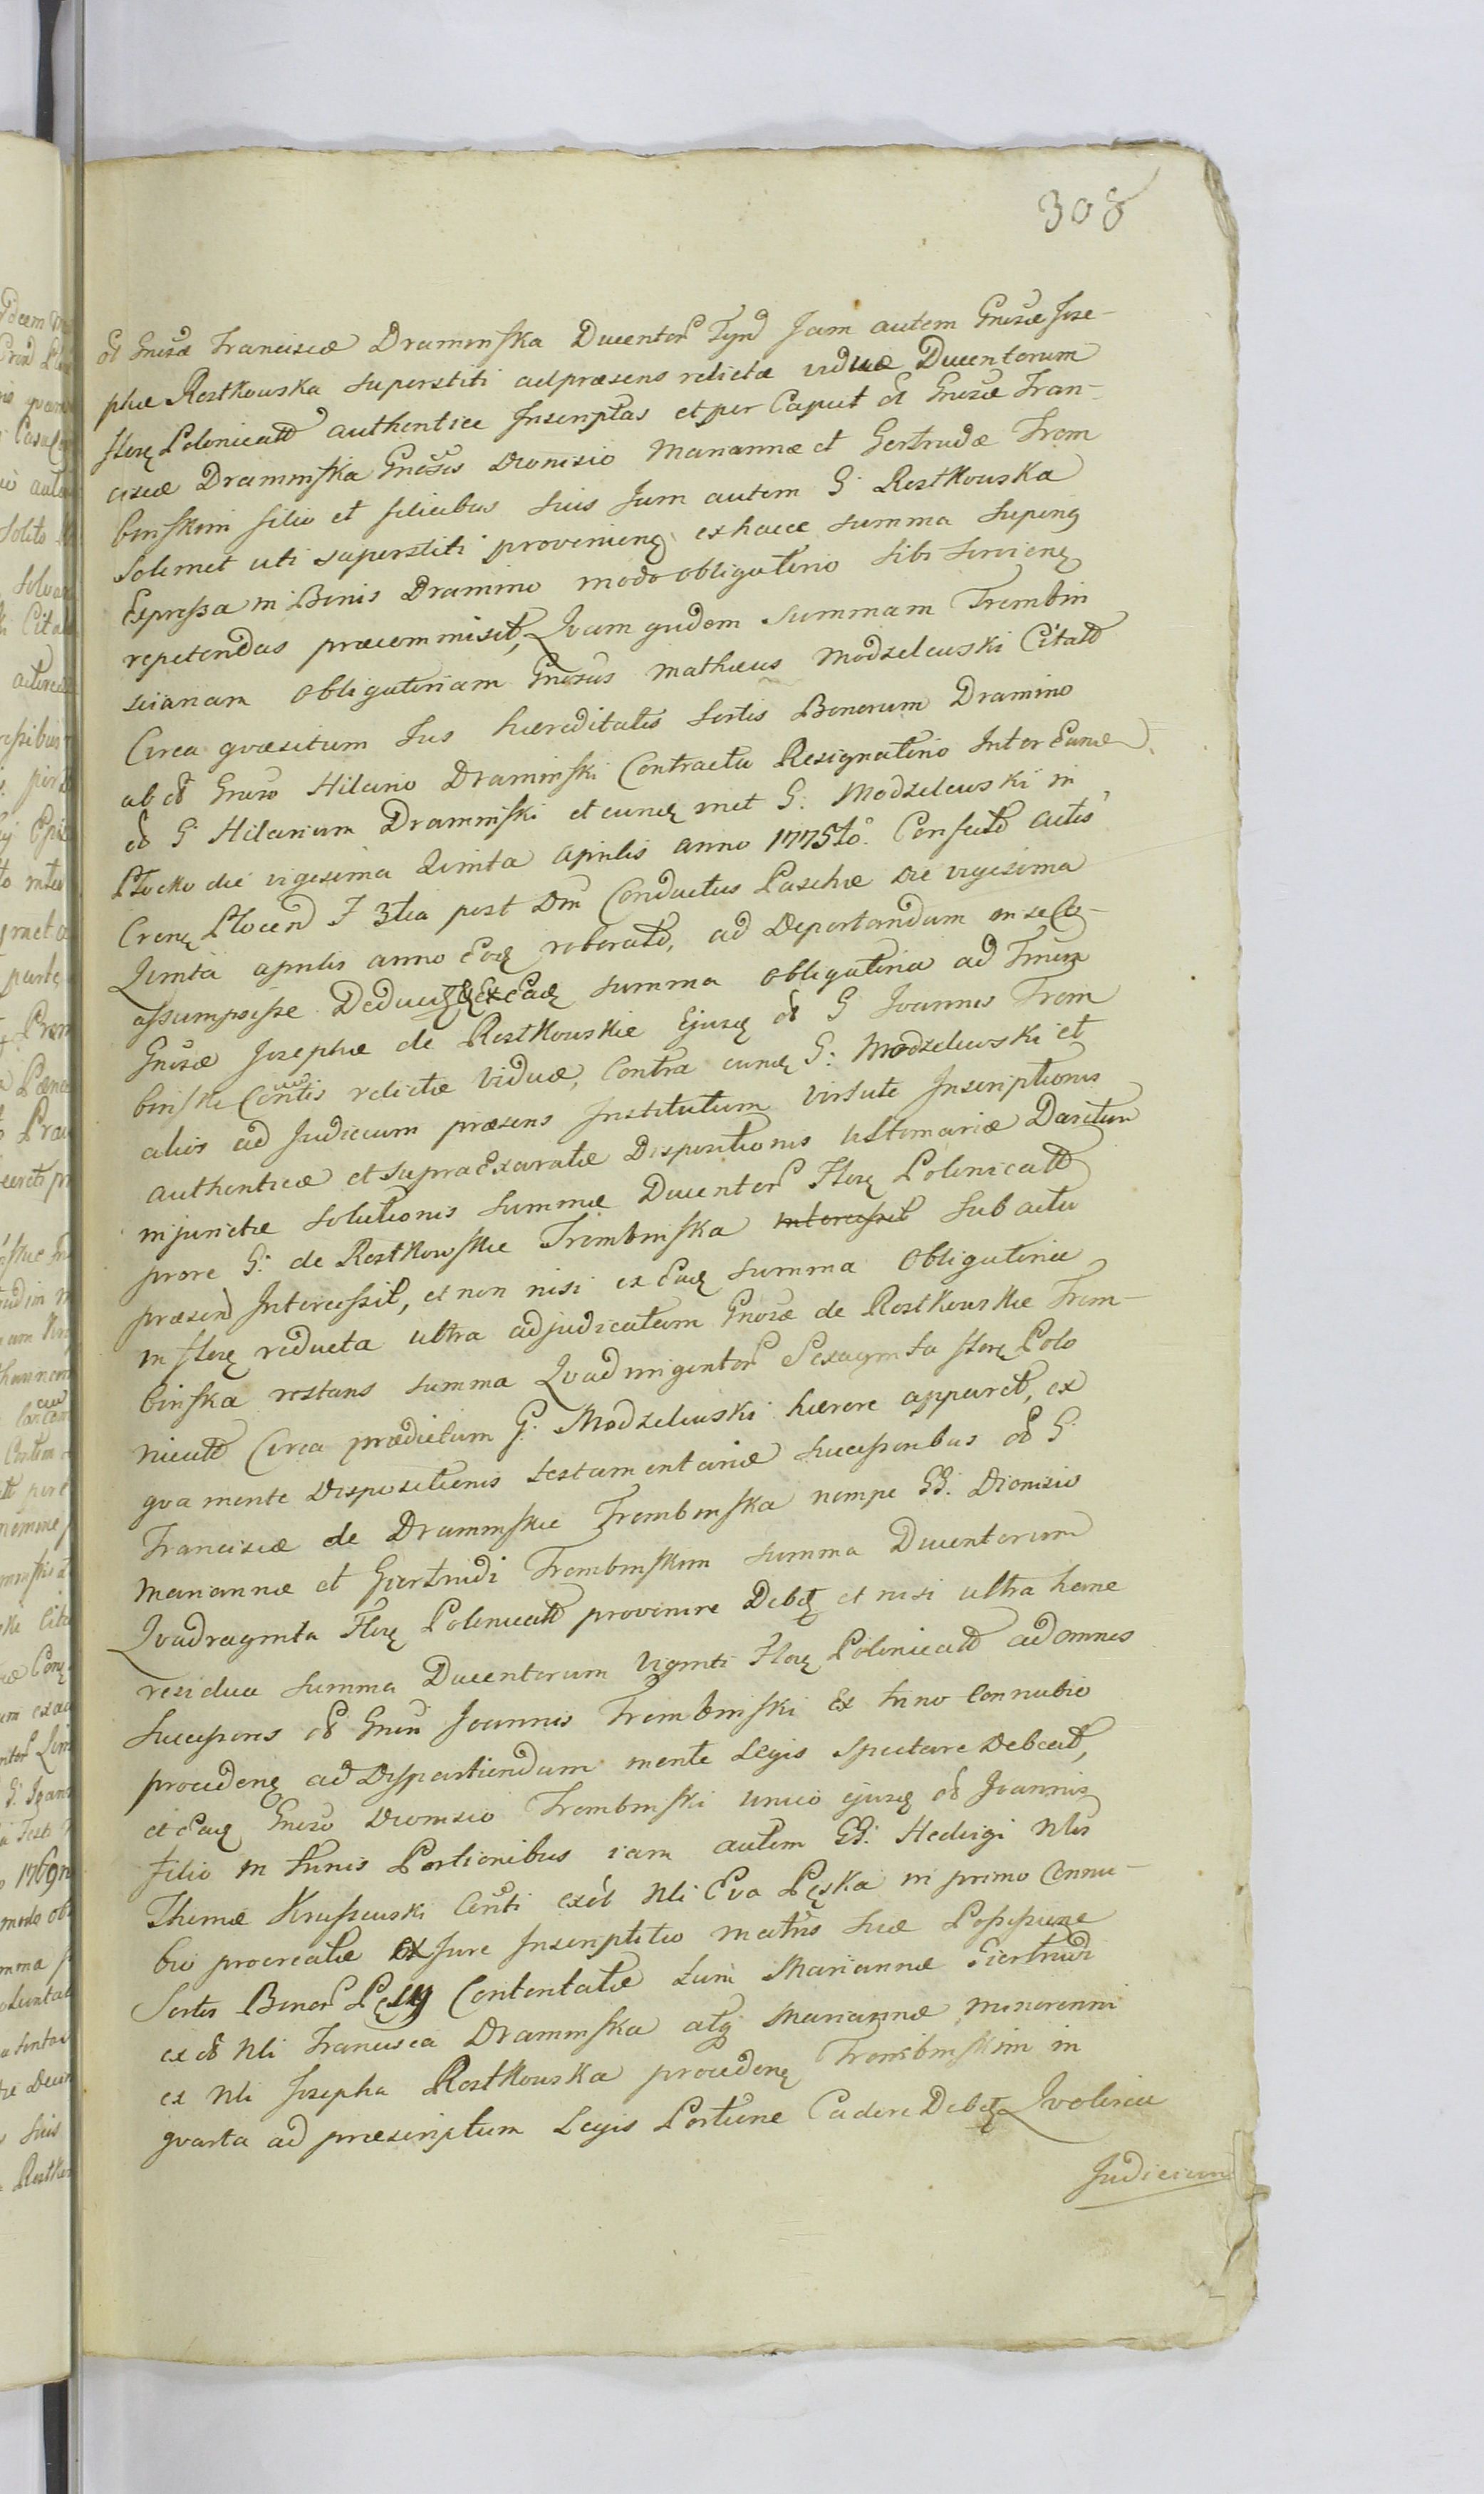 308
ol Gnosæ Francisce Draminska Ducentor Tynd Jam autem Gnosæ Jose-
phæ Rostkowska superstiti ad præsens relictæ viduæ Ducentorum
flor Polonicall authentice Inscriptas et per Caput ol Gnosæ Fran-
ciscæ Draminska Gnosis Dionisio Mariannæ et Gertrudæ Trem
binskim filio et filiabus suis Jam autem G. Rostkowska
Solemet uti superstiti provenieng ex hacce summa superiq
Expressa in Bonis Dramino modo obligatorio sibi servieng
repetendas præcommisit, Qvam qvidem summam Trembin
scianam obligatoriam Gnosus Mathæus Modzelewski Citatt
Circa qvæsitum Jus hæreditatis sortis Bonorum Dramino
ab ol Gnoso Hilario Draminski Contractu Resignatorio Inter Eund
ol G Hilarium Draminski et eundq met G. Modzelewski in
Plocko die vigesima Qvinta Aprilis anno 1775to. Confectt actis
Crenq Plocen F 3tia post Dm Conductus Paschæ die vigesima
Qvinta aprilis anno Eodq roboratt, ad Deportandum in se Co-
assumpsisse Deducitq Ex Eadq summa obligatoria ad Tnum
Gnosæ Josephæ de Rostkowskie Ejusq ol G Joannis Trem
binski Contis relictæ Viduæ, Contra eundq G. Modzelewski et
alios ad Judicium præsens Institutum virtute Inscriptionis
authenticæ et supra Exaratæ Dispositionis ultimariæ Daritur
injunctæ solutionis summæ Ducentor Flor Polonicatt
prore G. de Rostkowskie Trembinska intercessit sub actu
præsen Intercessit, et non nisi ex Eadq summa obligatoria
in florq reducta ultra adjudicatam Gnosæ de Rostkowskie Trem-
binska restans summa Qvadringentor Sexaginta florq Polo
nicatt Circa prædictum G. Modzelewski hærere apparet, ex
qva mente Dispositionis testamentariæ successoribus ol G
Francisca de Draminskie Trembinska nempe GG. Dionisio
Mariannæ et Giertrudi Trembinskim summa Ducentorum
Qvadraginta Florq Polonicatt provenire Debetq et nisi ultra hanc
residua summa Ducentorum viginti Florq Polonicatt ad omnes
Successores ol Gnosi Joannis Trembinski Ex trino Connubio
procedenq ad Dispartiendum mente Legis spectare Debeat,
et Eadq Gnoso Dionisio Trembinski unico ejusq ol Joannis
Filio in trinis Portionibus iam autem GG. Hedvigi Nlis
Thomæ Kruszewski Conti ex ol Nli Eva Pęska in primo Connu-
bio procreatæ ex Jure Inscriptitio matris suæ Possessione
Sortis Bonor Pęsy Contentatæ tum Mariannæ Giertrudi
ex ol Nli Francisca Draminska atq Mariannæ minorenni
ex Nli Josepha Rostkowska procedenq Trembinskim in
qvarta ad præscriptum Legis Portione Cadere Debetq Qvolicia
Judicium